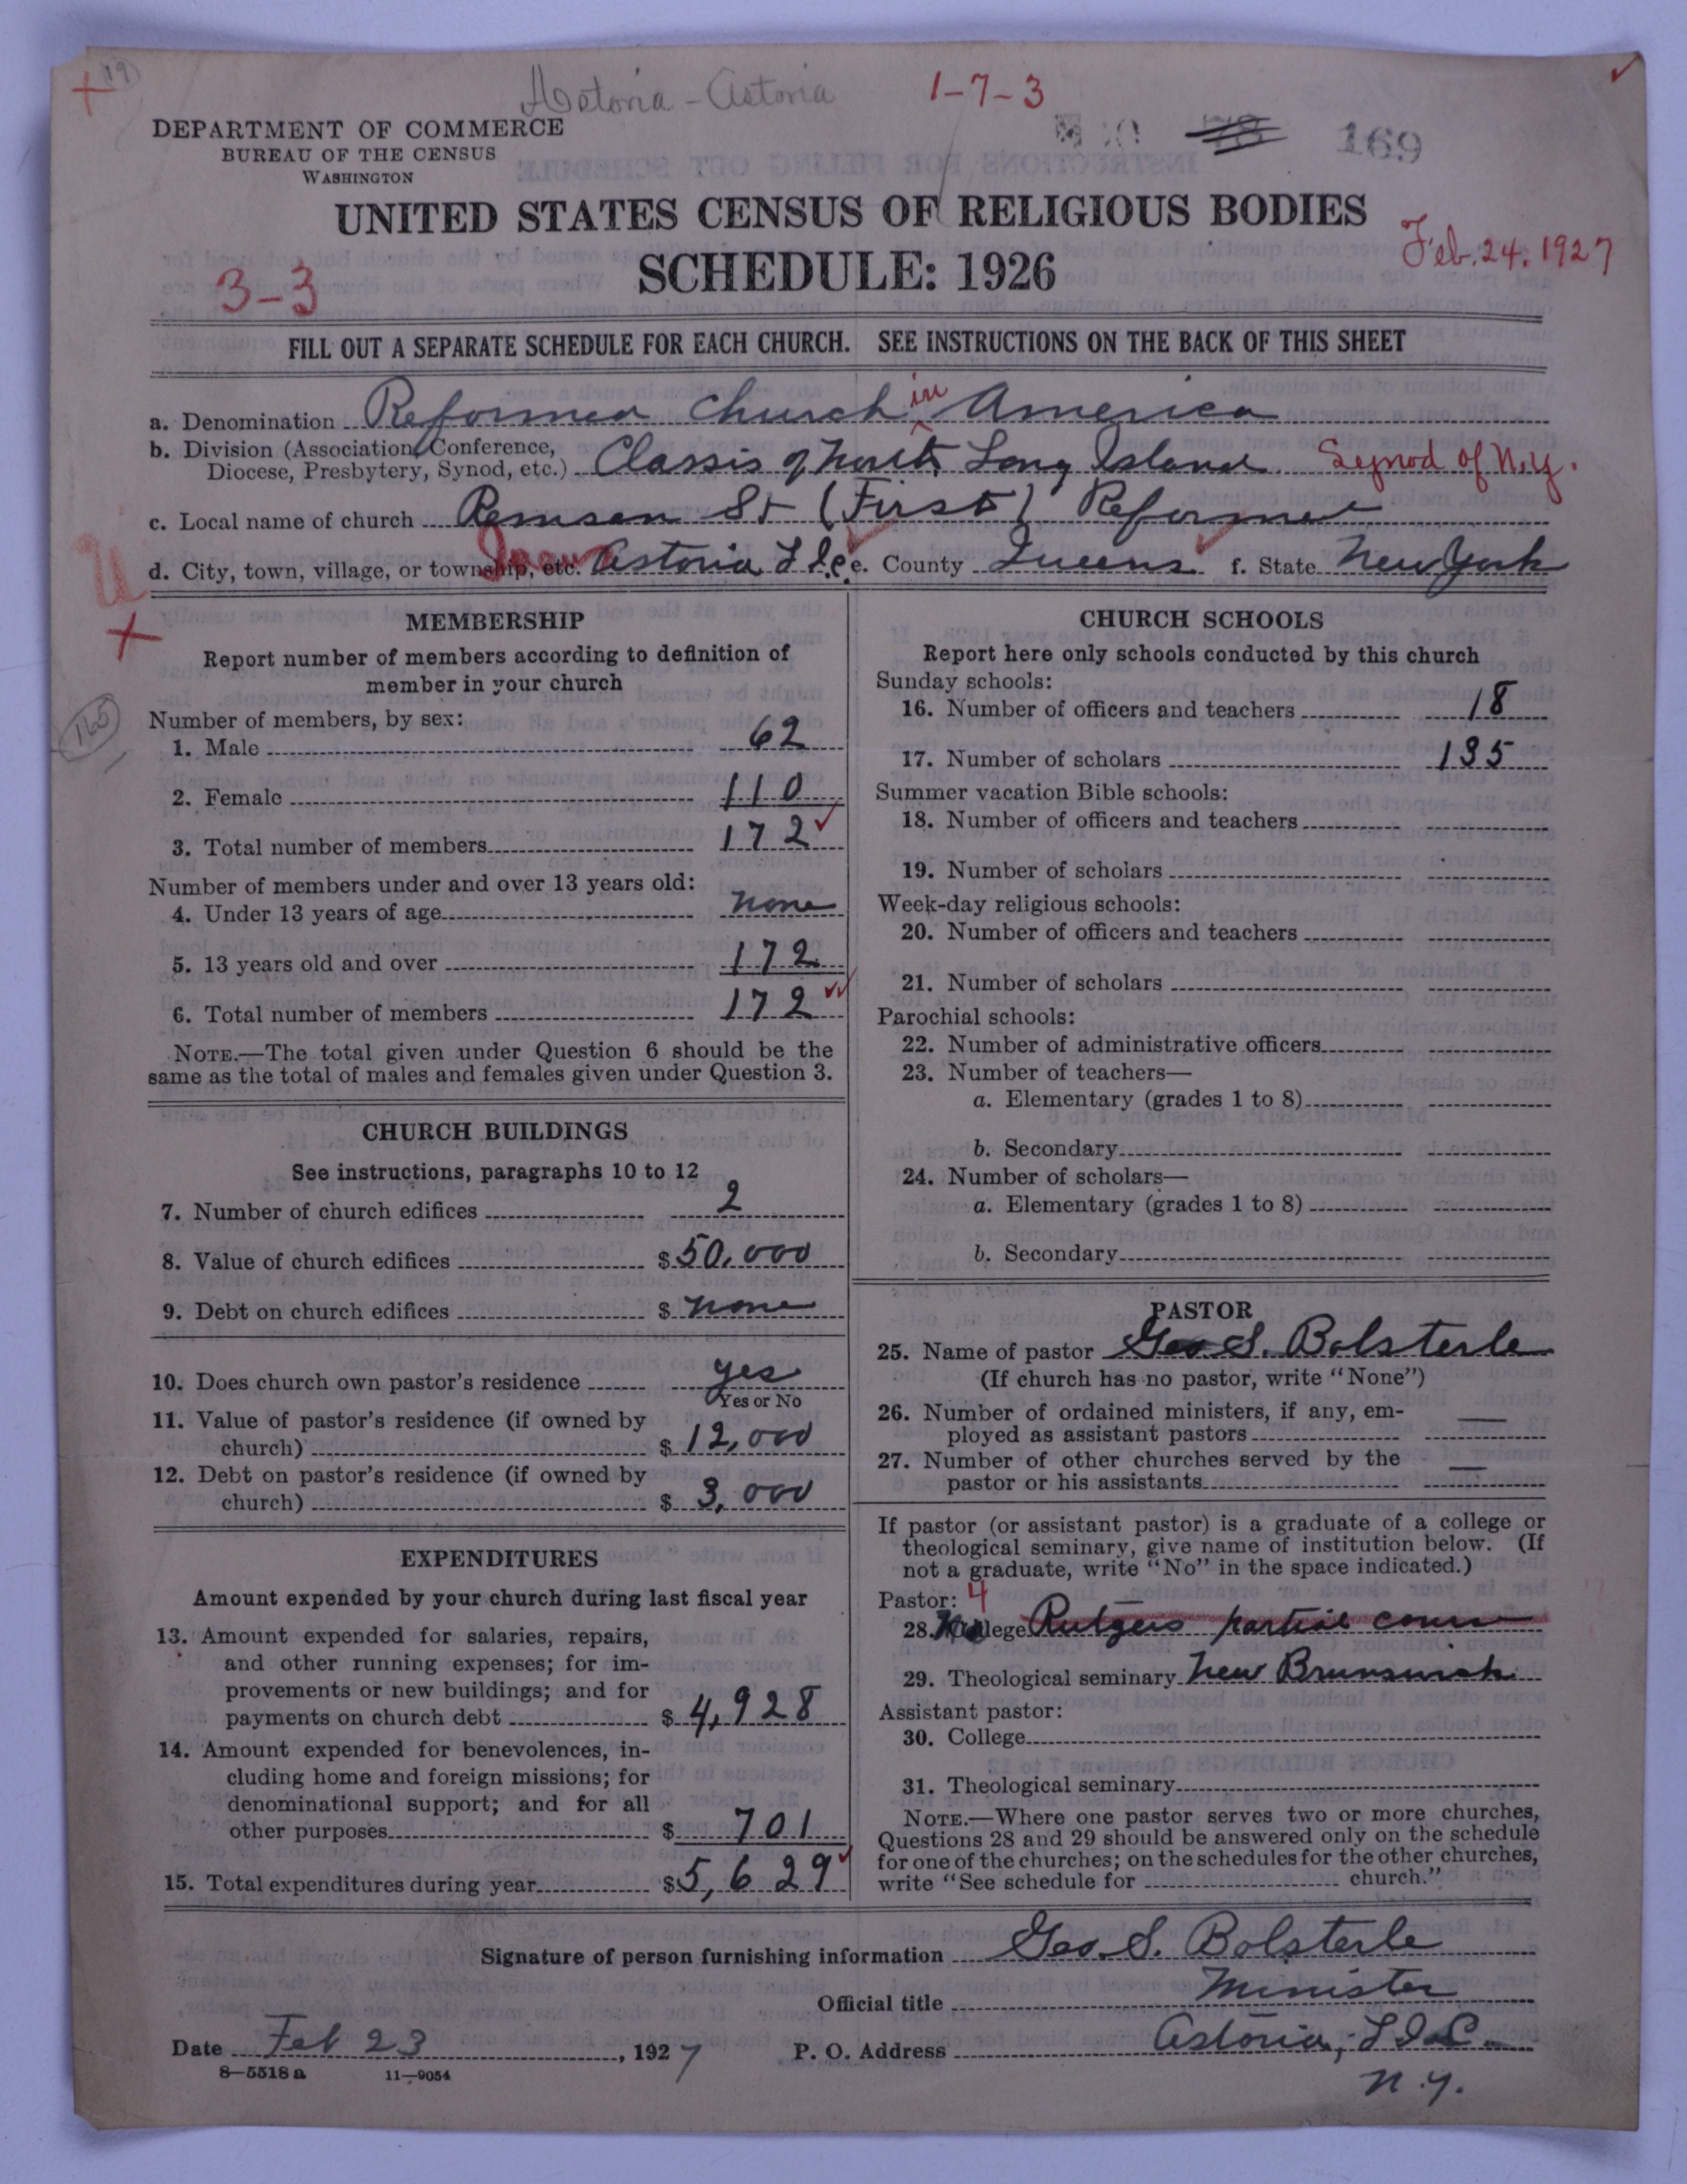 19
Astoria - Astoria
1-7-3
DEPARTMENT OF COMMERCE
BUREAU OF THE CENSUS
WASHINGTON
169
UNITED STATES CENSUS OF RELIGIOUS BODIES
SCHEDULE: 1926
Feb. 24, 1927
3-3
FILL OUT A SEPARATE SCHEDULE FOR EACH CHURCH. SEE INSTRUCTIONS ON THE BACK OF THIS SHEET
a. Denomination Reformed Church in America
b. Division (Association, Conference,
Diocese, Presbytery, Synod, etc.) Classis of North Long Island Synod of N.Y.
c. Local name of church Remsen St (First) Reformed
d. City, town, village, or township, etc. Astoria L I C e. County Queens f. State New York
MEMBERSHIP
Report number of members according to definition of
member in your church
Number of members, by sex:
1. Male 62
2. Female 110
3. Total number of members 172
Number of members under and over 13 years old:
4. Under 13 years of age none
5. 13 years old and over 172
6. Total number of members 172
NOTE.—The total given under Question 6 should be the
same as the total of males and females given under Question 3.
CHURCH BUILDINGS
See instructions, paragraphs 10 to 12
7. Number of church edifices 2
8. Value of church edifices $ 50,000
9. Debt on church edifices $ none
10. Does church own pastor's residence yes
Yes or No
11. Value of pastor's residence (if owned by
church) $ 12,000
12. Debt on pastor's residence (if owned by
church) $ 3,000
EXPENDITURES
Amount expended by your church during last fiscal year
13. Amount expended for salaries, repairs,
and other running expenses; for im-
provements or new buildings; and for
payments on church debt $ 4,928
14. Amount expended for benevolences, in-
cluding home and foreign missions; for
denominational support; and for all
other purposes $ 701
15. Total expenditures during year $ 5,629
CHURCH SCHOOLS
Report here only schools conducted by this church
Sunday schools:
16. Number of officers and teachers 18
17. Number of scholars 135
Summer vacation Bible schools:
18. Number of officers and teachers
19. Number of scholars
Week-day religious schools:
20. Number of officers and teachers
21. Number of scholars
Parochial schools:
22. Number of administrative officers
23. Number of teachers—
a. Elementary (grades 1 to 8)
b. Secondary
24. Number of scholars—
a. Elementary (grades 1 to 8)
b. Secondary
PASTOR
25. Name of pastor Geo S. Bolsterle
(If church has no pastor, write "None")
26. Number of ordained ministers, if any, em-
ployed as assistant pastors —
27. Number of other churches served by the
pastor or his assistants —
If pastor (or assistant pastor) is a graduate of a college or
theological seminary, give name of institution below. (If
not a graduate, write "No" in the space indicated.)
Pastor: 4
28. College Rutgers partial course
29. Theological seminary New Brunswick
Assistant pastor:
30. College
31. Theological seminary
NOTE.—Where one pastor serves two or more churches,
Questions 28 and 29 should be answered only on the schedule
for one of the churches; on the schedules for the other churches,
write "See schedule for church."
Signature of person furnishing information Geo. S. Bolsterle
Official title Minister
Date Feb 23, 1927 P. O. Address Astoria, L I C.
N.Y.
8—5518 a 11—9054